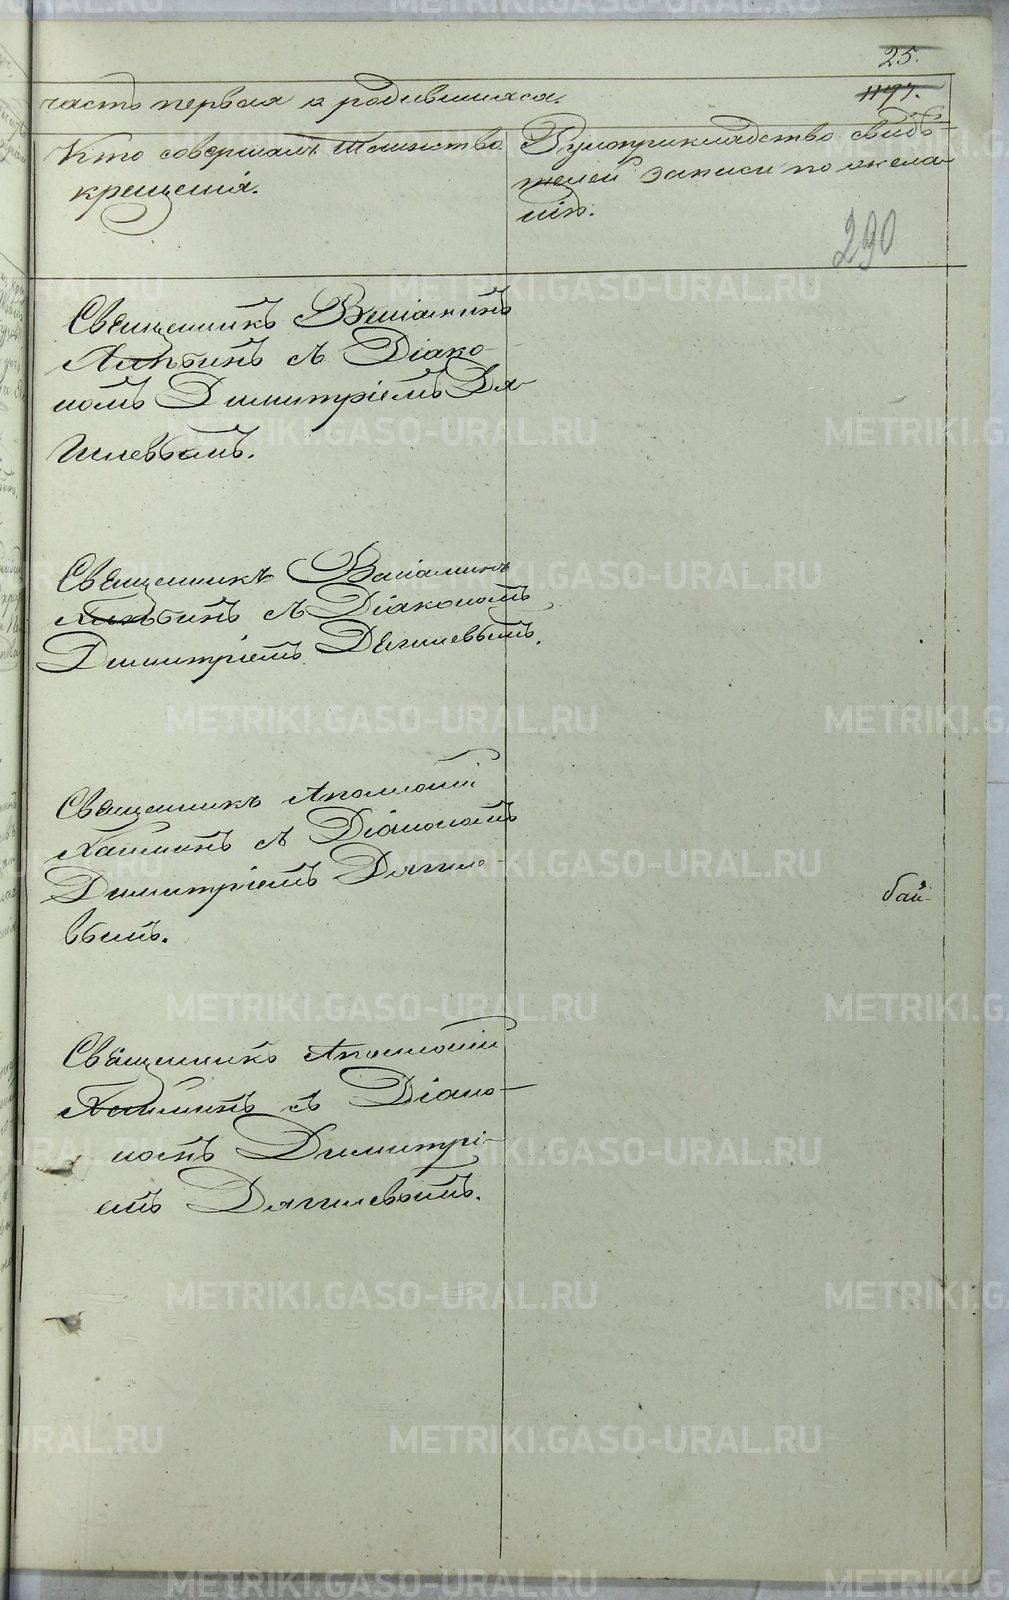 25.
1197.
часть первая о родившихся.
Кто совершалъ таинство
крещенія.
Рукоприкладство свидѣ-
телей записи по жела-
нію.
290
Священникъ Веніаминъ
с Діако-
номъ Димитріемъ Дя-
гилевымъ.
Священникъ Веніаминъ
с Діакономъ
Димитріемъ Дягилевымъ.
Священникъ Аполлоній
с Діакономъ
Димитріемъ Дягиле-
вымъ.
бай-
Священникъ Аполлоній
с Діако-
номъ Димитрі-
емъ Дягилевымъ.
METRIKI.GASO-URAL.RU